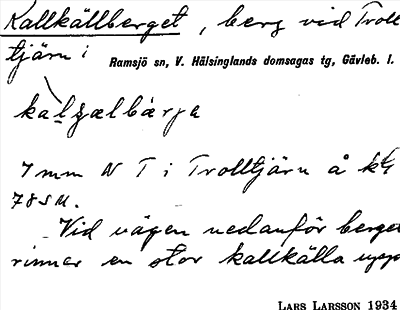 Kallkällberget, berg vid Troll
tjärn i
Ramsjö sn, V. Hälsinglands domsagas tg, Gävleb. l.
7 mm N T i Trolltjärn å
78 SU.
Vid vägen nedanför berget
rinner en stor kallkälla upp
LARS LARSSON 1934